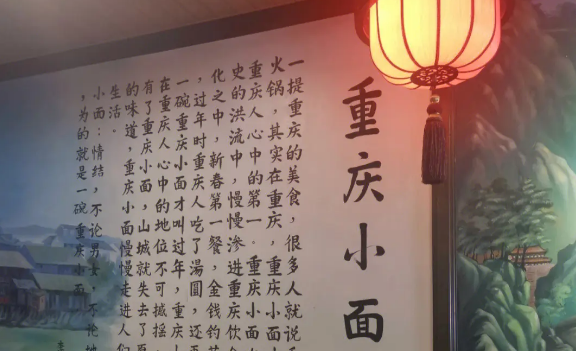 重庆小面
一提重庆的美食，很多人就说
火锅，其实在重庆，重庆小面
重庆人心中的第一。重庆小面
史的洪流中，慢慢渗进重庆饮
化之中，新春第一餐，金钱的
，过年时重庆人吃了汤圆，还
一碗重庆小面才叫过年，重庆
在重庆人心中的地位不可撼摇
有了重庆小面，山城就失去了
的味道，重庆小面慢慢走进人们
生活。
小面：情结，不论男女，不论
，为的就是一碗重庆小面